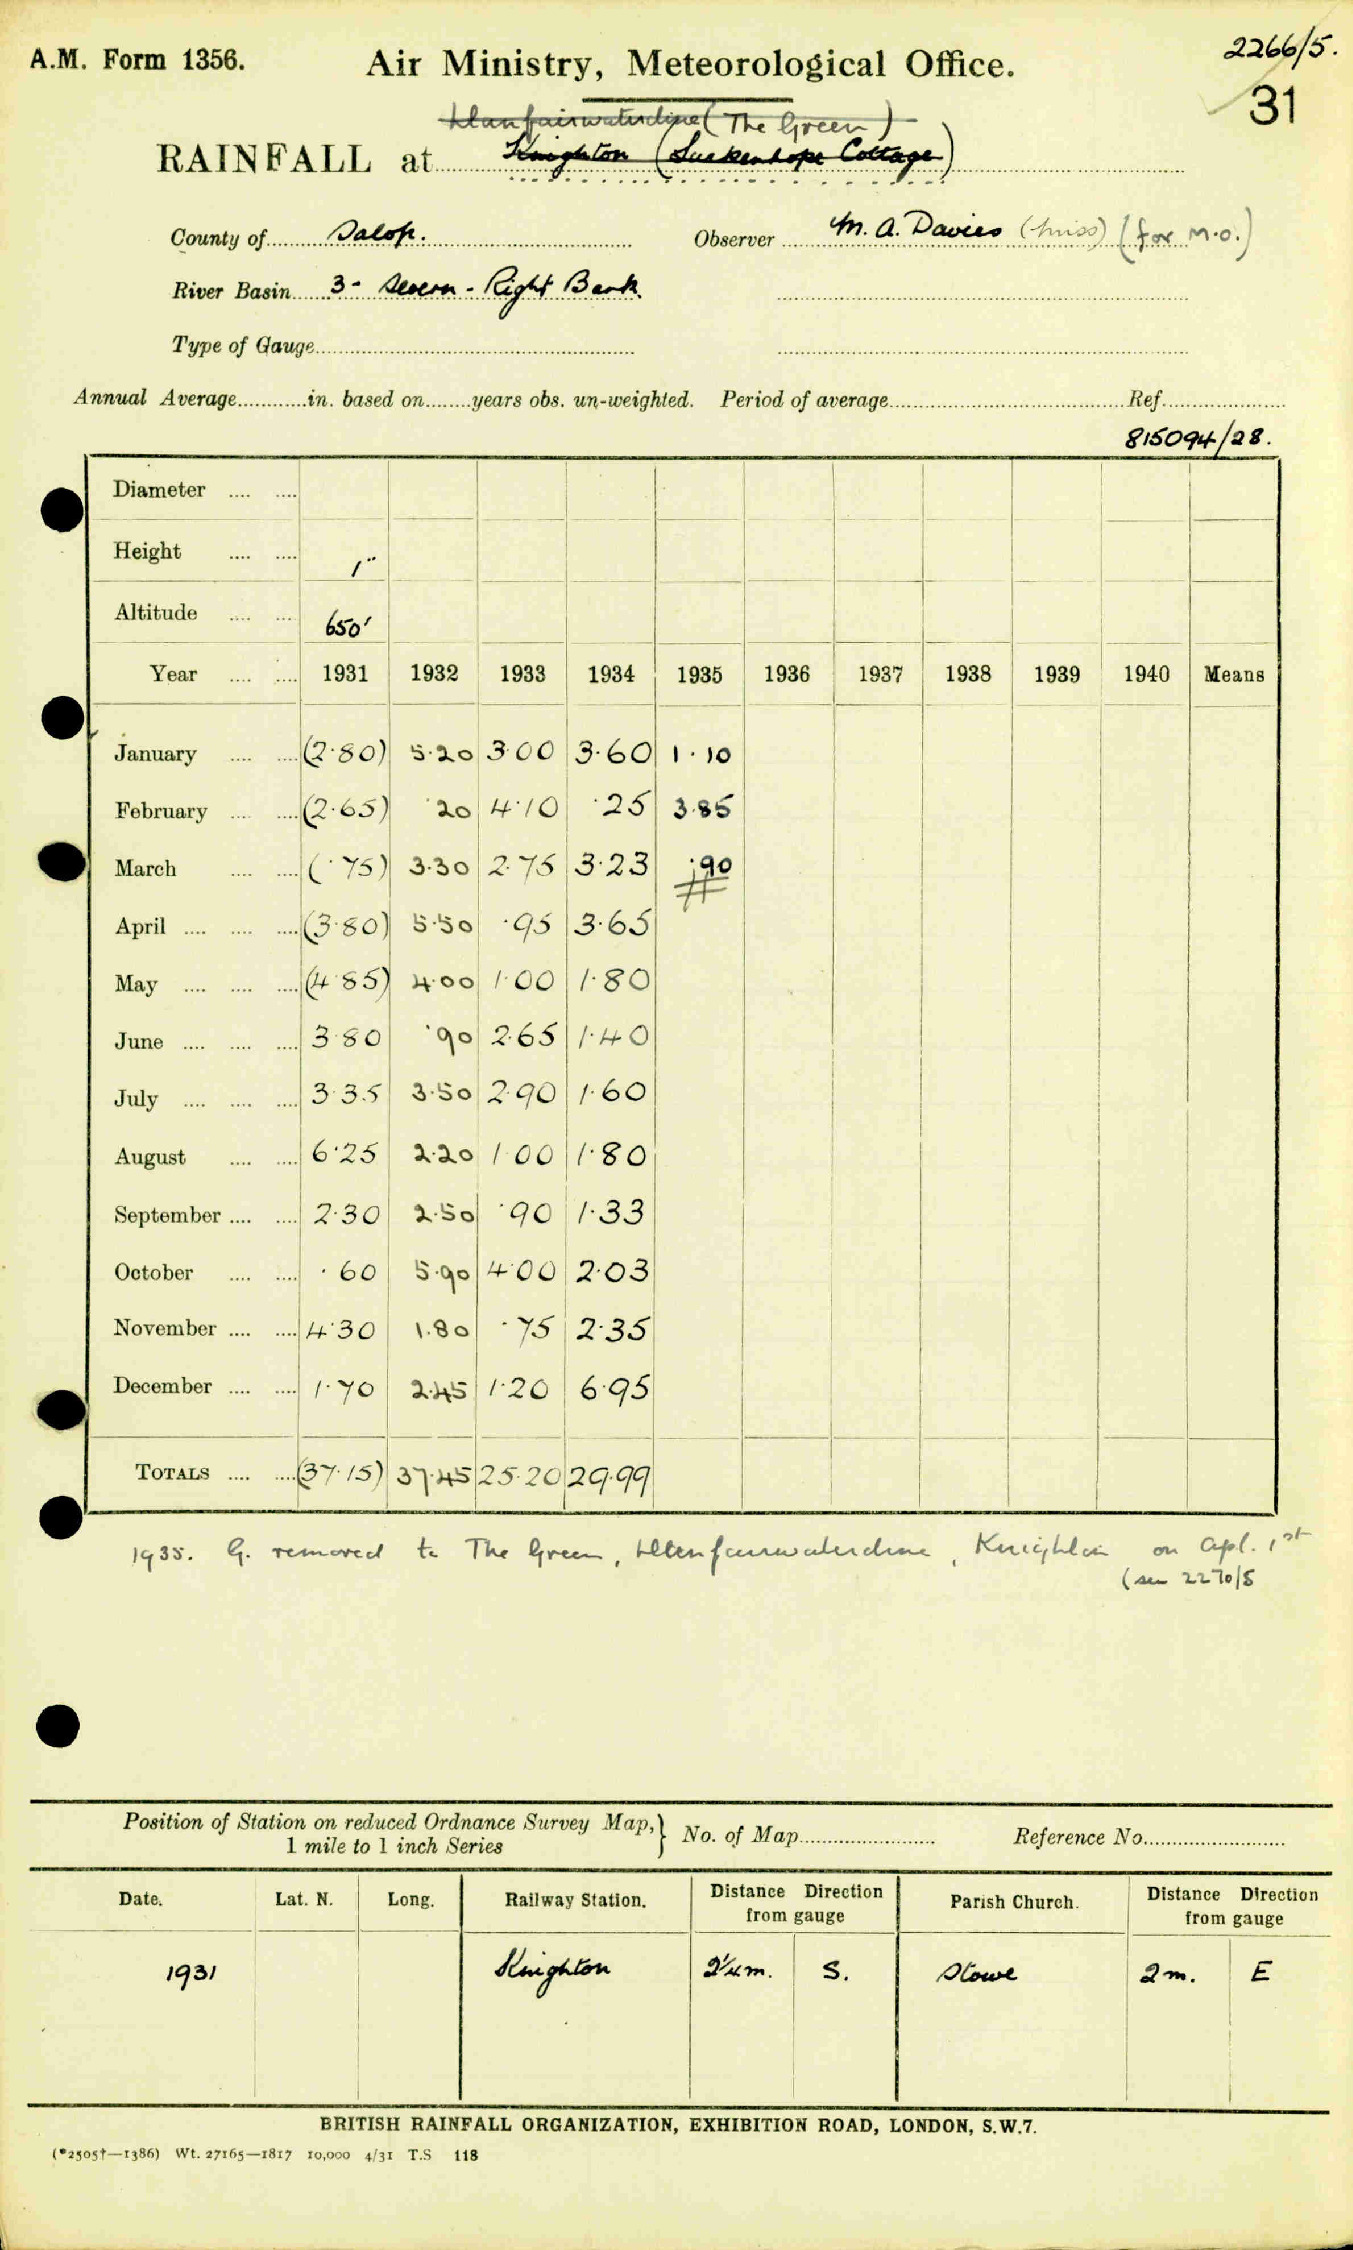 A.M. Form 1356.
Air Ministry, Meteorological Office.
2266/5.
31
Llanfairwaterdine (The Green)
RAINFALL at Knighton (Luckenhope Cottage)
County of Salop. Observer M. A. Davies (Miss) (for M.O.)
River Basin 3 - Severn - Right Bank.
Type of Gauge
Annual Average in. based on years obs. un-weighted. Period of average Ref.
815094/28.
Diameter
Height 1"
Altitude 650'
Year 1931 1932 1933 1934 1935 1936 1937 1938 1939 1940 Means
January (2·80) 5·20 3·00 3·60 1·10
February (2·65) ·20 4·10 ·25 3·85
March (·75) 3·30 2·75 3·23 ·90
April (3·80) 5·50 ·95 3·65
May (4·85) 4·00 1·00 1·80
June 3·80 ·90 2·65 1·40
July 3·35 3·50 2·90 1·60
August 6·25 2·20 1·00 1·80
September 2·30 2·50 ·90 1·33
October ·60 5·90 4·00 2·03
November 4·30 1·80 ·75 2·35
December 1·70 2·45 1·20 6·95
TOTALS (37·15) 37·45 25·20 29·99
1935. G. removed to The Green, Llanfairwaterdine, Knighton on Apl. 1st
(see 2270/5
Position of Station on reduced Ordnance Survey Map, } No. of Map Reference No.
1 mile to 1 inch Series
Date. Lat. N. Long. Railway Station. Distance Direction from gauge Parish Church. Distance Direction from gauge
1931 Knighton 2¼m. S. Stowe 2m. E
BRITISH RAINFALL ORGANIZATION, EXHIBITION ROAD, LONDON, S.W.7.
(*2505†—1386) Wt. 27165—1817 10,000 4/31 T.S 118